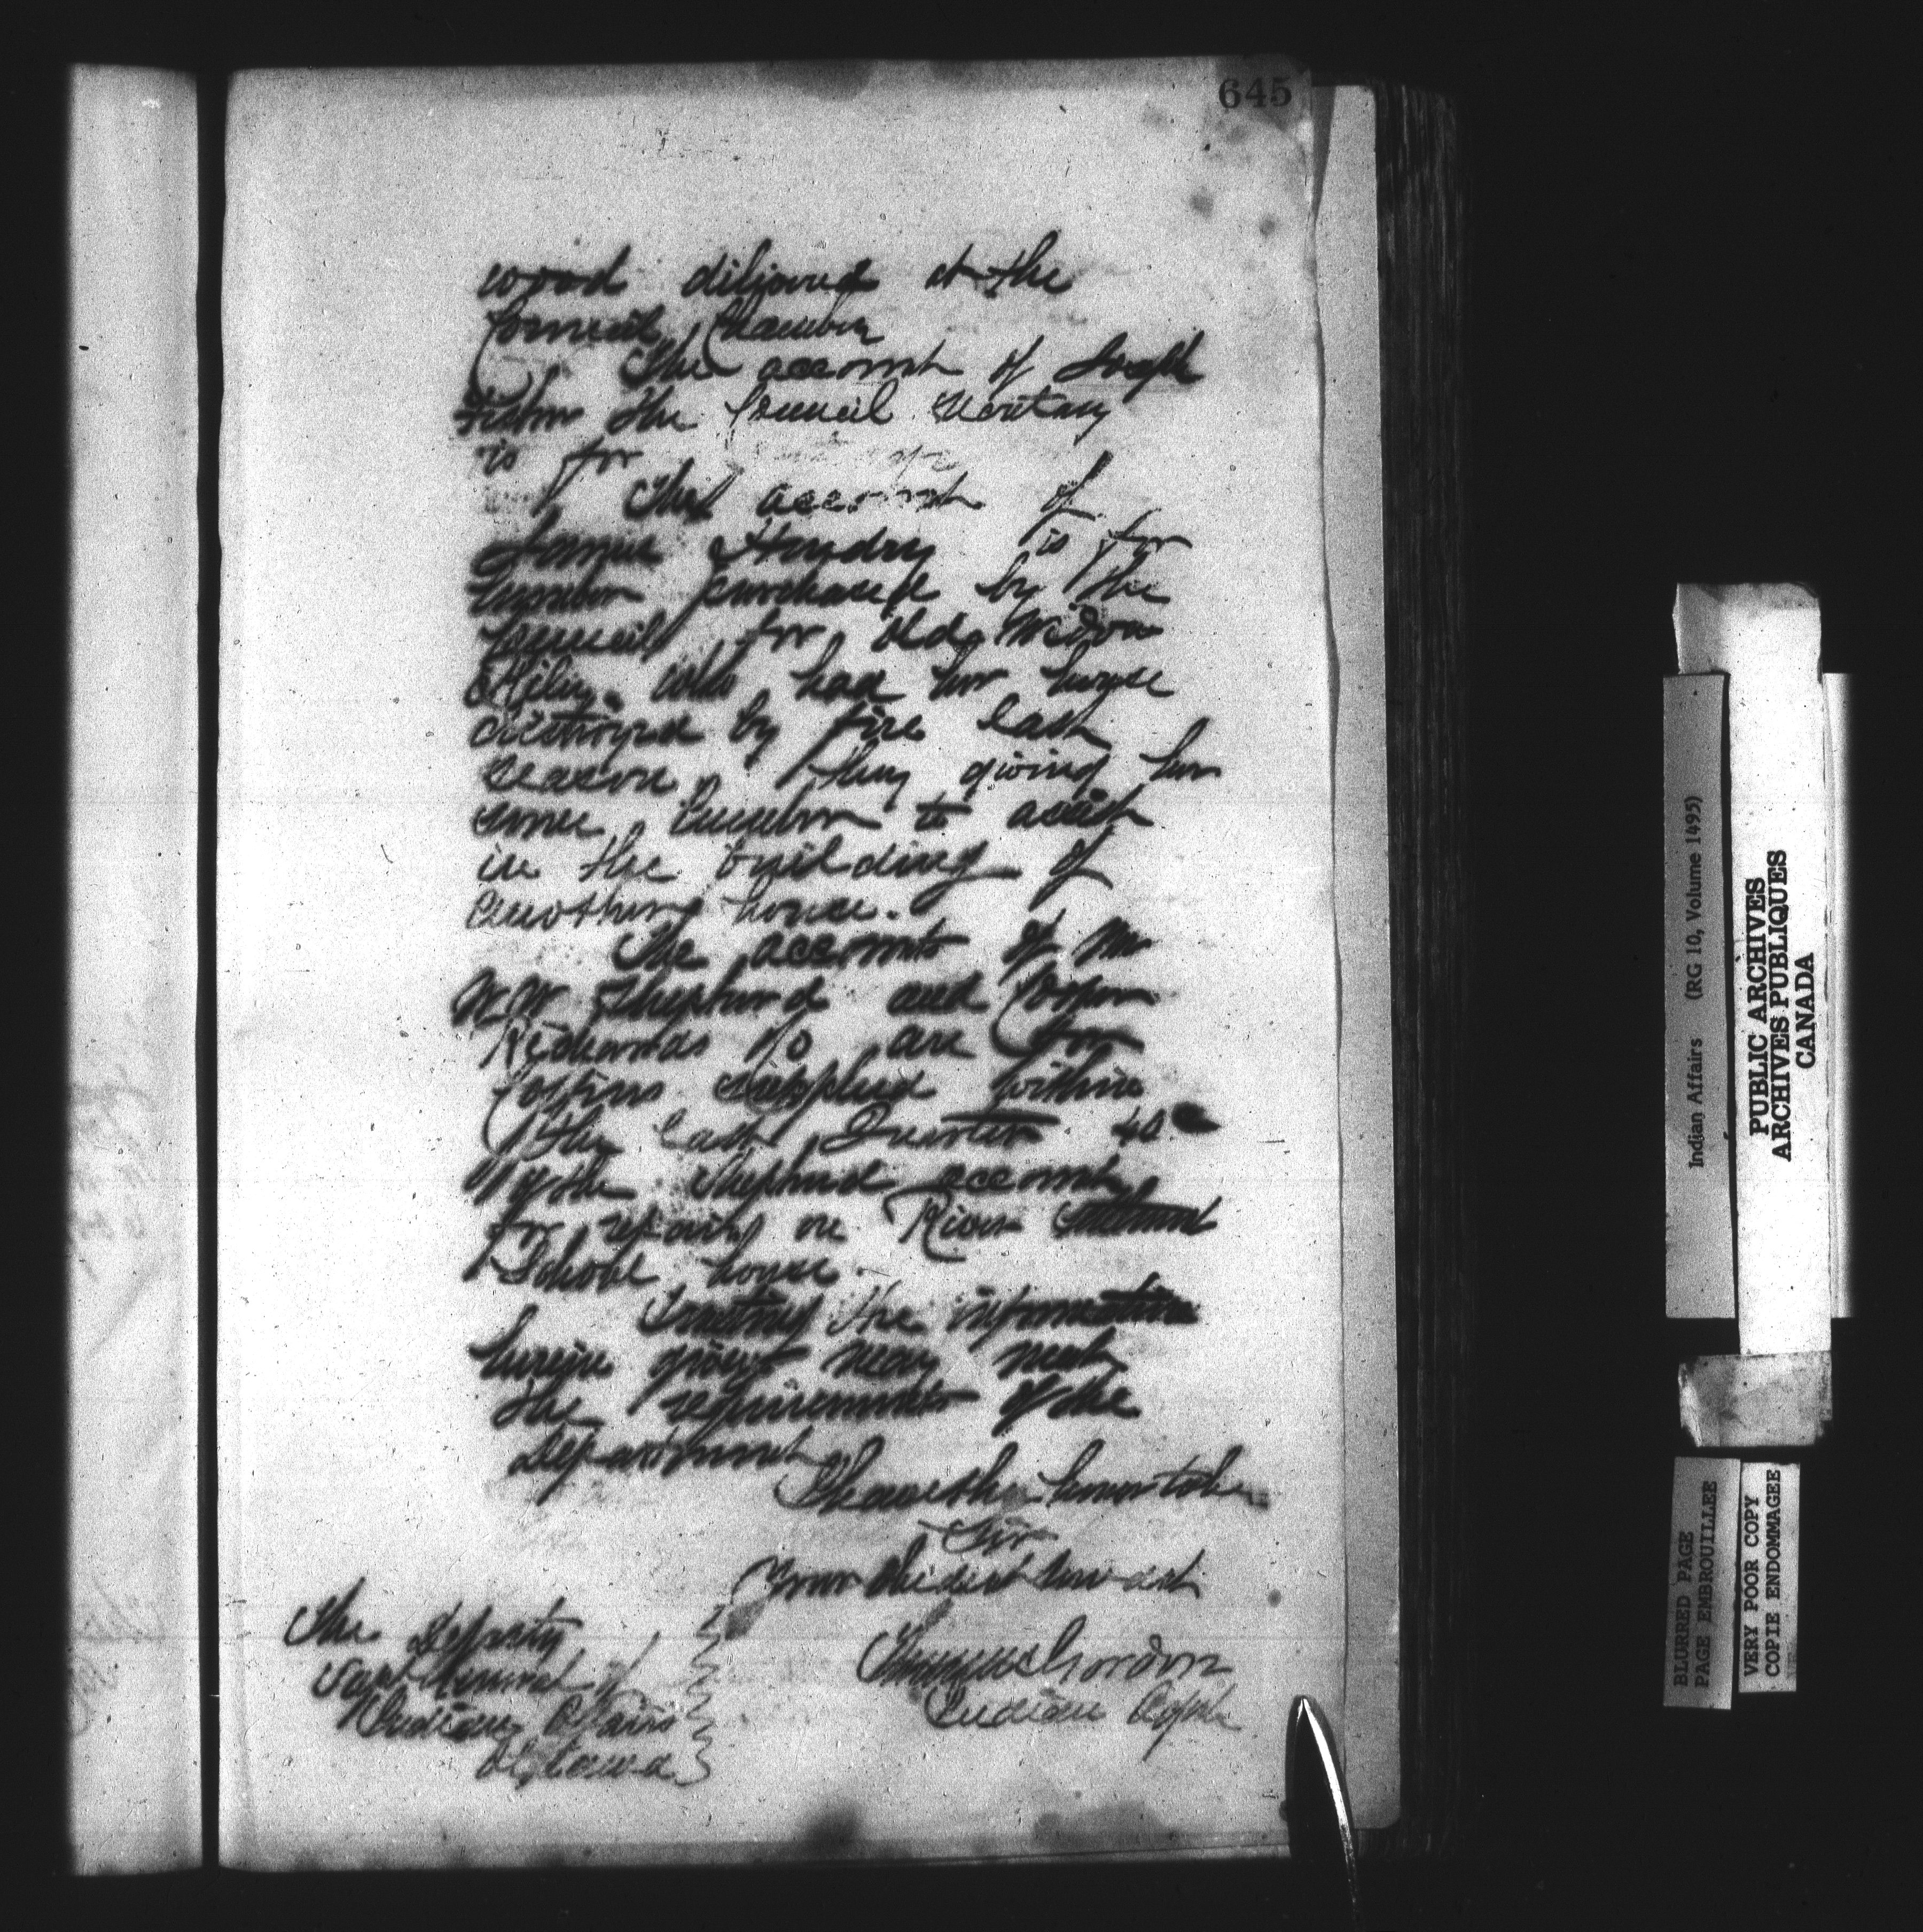 645
wood delivered at the
Council Chamber
The account of Joseph
Fisher the Council Secretary
is for
The account of
James Hendry is for
Lumber purchased by the
Council for old Widow
who had her house
destroyed by fire last
season they giving her
some Lumber to assist
in the building of
another house.
The accounts of Mr
W.W. Shepherd and
Richards Co are for
Coffins supplied within
the last Quarter
of the Shepherd account
for repairs on River Settlement
School house
Trusting the information
herein given may meet
the requirements of the
Department
I have the honor to be
Sir
Your Obedient Servant
Thomas Gordon
Indian Agent
The Deputy
Supt General of
Indian Affairs
Ottawa
Indian Affairs (RG 10, Volume 1495)
PUBLIC ARCHIVES
ARCHIVES PUBLIQUES
CANADA
BLURRED PAGE
PAGE EMBROUILLEE
VERY POOR COPY
COPIE ENDOMMAGEE